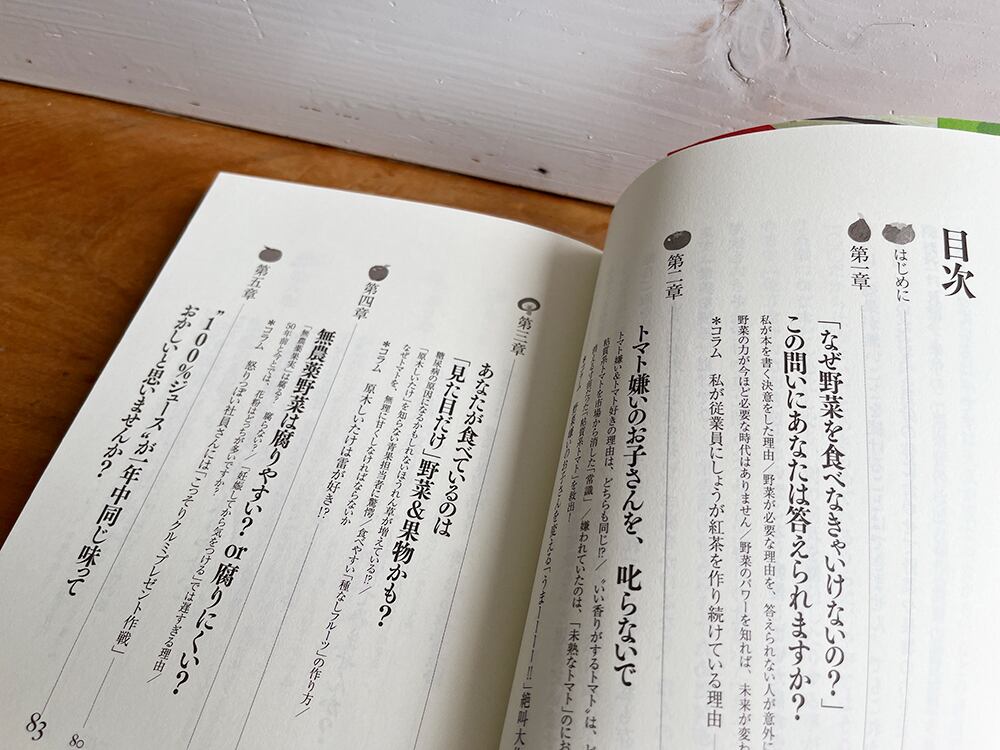 目次
はじめに
第一章
「なぜ野菜を食べなきゃいけないの？」
この問いにあなたは答えられますか？
私が本を書く決意をした理由／野菜が必要な理由を、答えられない人が意外に
野菜の力が今ほど必要な時代はありません／野菜のパワーを知れば、未来が変わ
＊コラム　私が従業員にしょうが紅茶を作り続けている理由
第二章
トマト嫌いのお子さんを、叱らないで
トマト嫌い＆トマト好きの理由は、どちらも同じ!?／“いい香りがするトマト”は、ど
桔賀系トマトを市場から消した「常識」／嫌われていたのは、「未熟なトマト」のにお
第三章
あなたが食べているのは
「見た目だけ」野菜＆果物かも？
糖尿病の原因になるかもしれないほうれん草が増えている!?／
「原木しいたけ」を知らない青果担当者に驚愕／食べやすい「種なしフルーツ」の作り方／
なぜトマトを、無理に甘くしなければならないか
＊コラム　原木しいたけは雷が好き!?
第四章
無農薬野菜は腐りやすい？ or 腐りにくい？
「無農薬果実」は腐る？　腐らない？／「妊娠してから気をつける」では遅すぎる理由／
50年前と今とでは、花粉はどっちが多いですか？
＊コラム　怒りっぽい社員さんには「こっそりクルミプレゼント作戦」
第五章
“100％ジュース”が一年中同じ味って
おかしいと思いませんか？
80
83